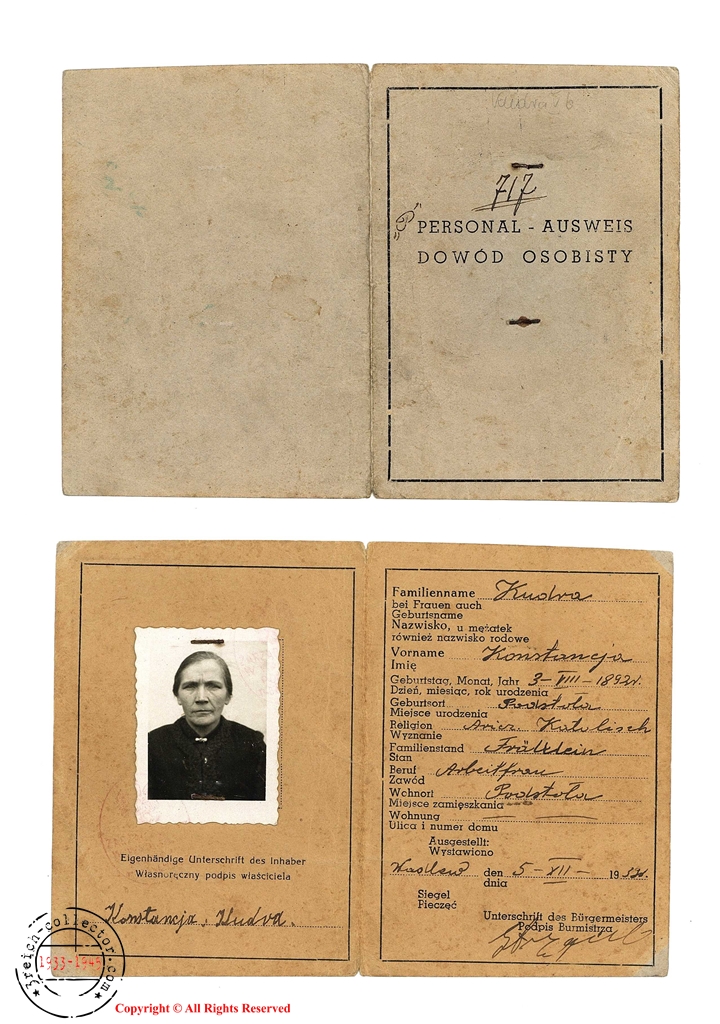 717
"P"
PERSONAL - AUSWEIS
DOWÓD OSOBISTY
Eigenhändige Unterschrift des Inhaber
Własnoręczny podpis właściciela
Konstancja, Kudra.
Familienname Kudra
bei Frauen auch
Geburtsname
Nazwisko, u mężatek
również nazwisko rodowe
Vorname Konstancja
Imię
Geburtstag, Monat, Jahr 3-VIII-1892r.
Dzień, miesiąc, rok urodzenia
Geburtsort Podstoła
Miejsce urodzenia
Religion Arier. Katolisch
Wyznanie
Familienstand Fräulein
Stan
Beruf Arbeitfrau
Zawód
Wohnort Podstoła
Miejsce zamięszkania
Wohnung — —
Ulica i numer domu
Ausgestellt:
Wystawiono
den 5-XII- 19
dnia
Siegel
Pieczęć
Unterschrift des Bürgermeisters
Podpis Burmistrza
3reich-collector.com
1933-1945
Copyright © All Rights Reserved